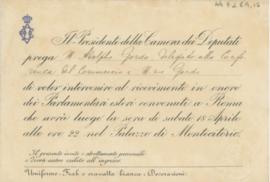 Il Presidente della Camera dei Deputati
prega M. Adolpho Gordo Delegato alla Confe
renza del Commercio e M.me Gordo
di voler intervenire al ricevimento in onore
dei Parlamentari esteri convenuti a Roma
che avrà luogo la sera di sabato 18 Aprile
alle ore 22 nel Palazzo di Montecitorio.
Il presente invito è strettamente personale
e dovrà essere esibito all'ingresso
Uniforme: Frak e cravatta bianca: Decorazioni.